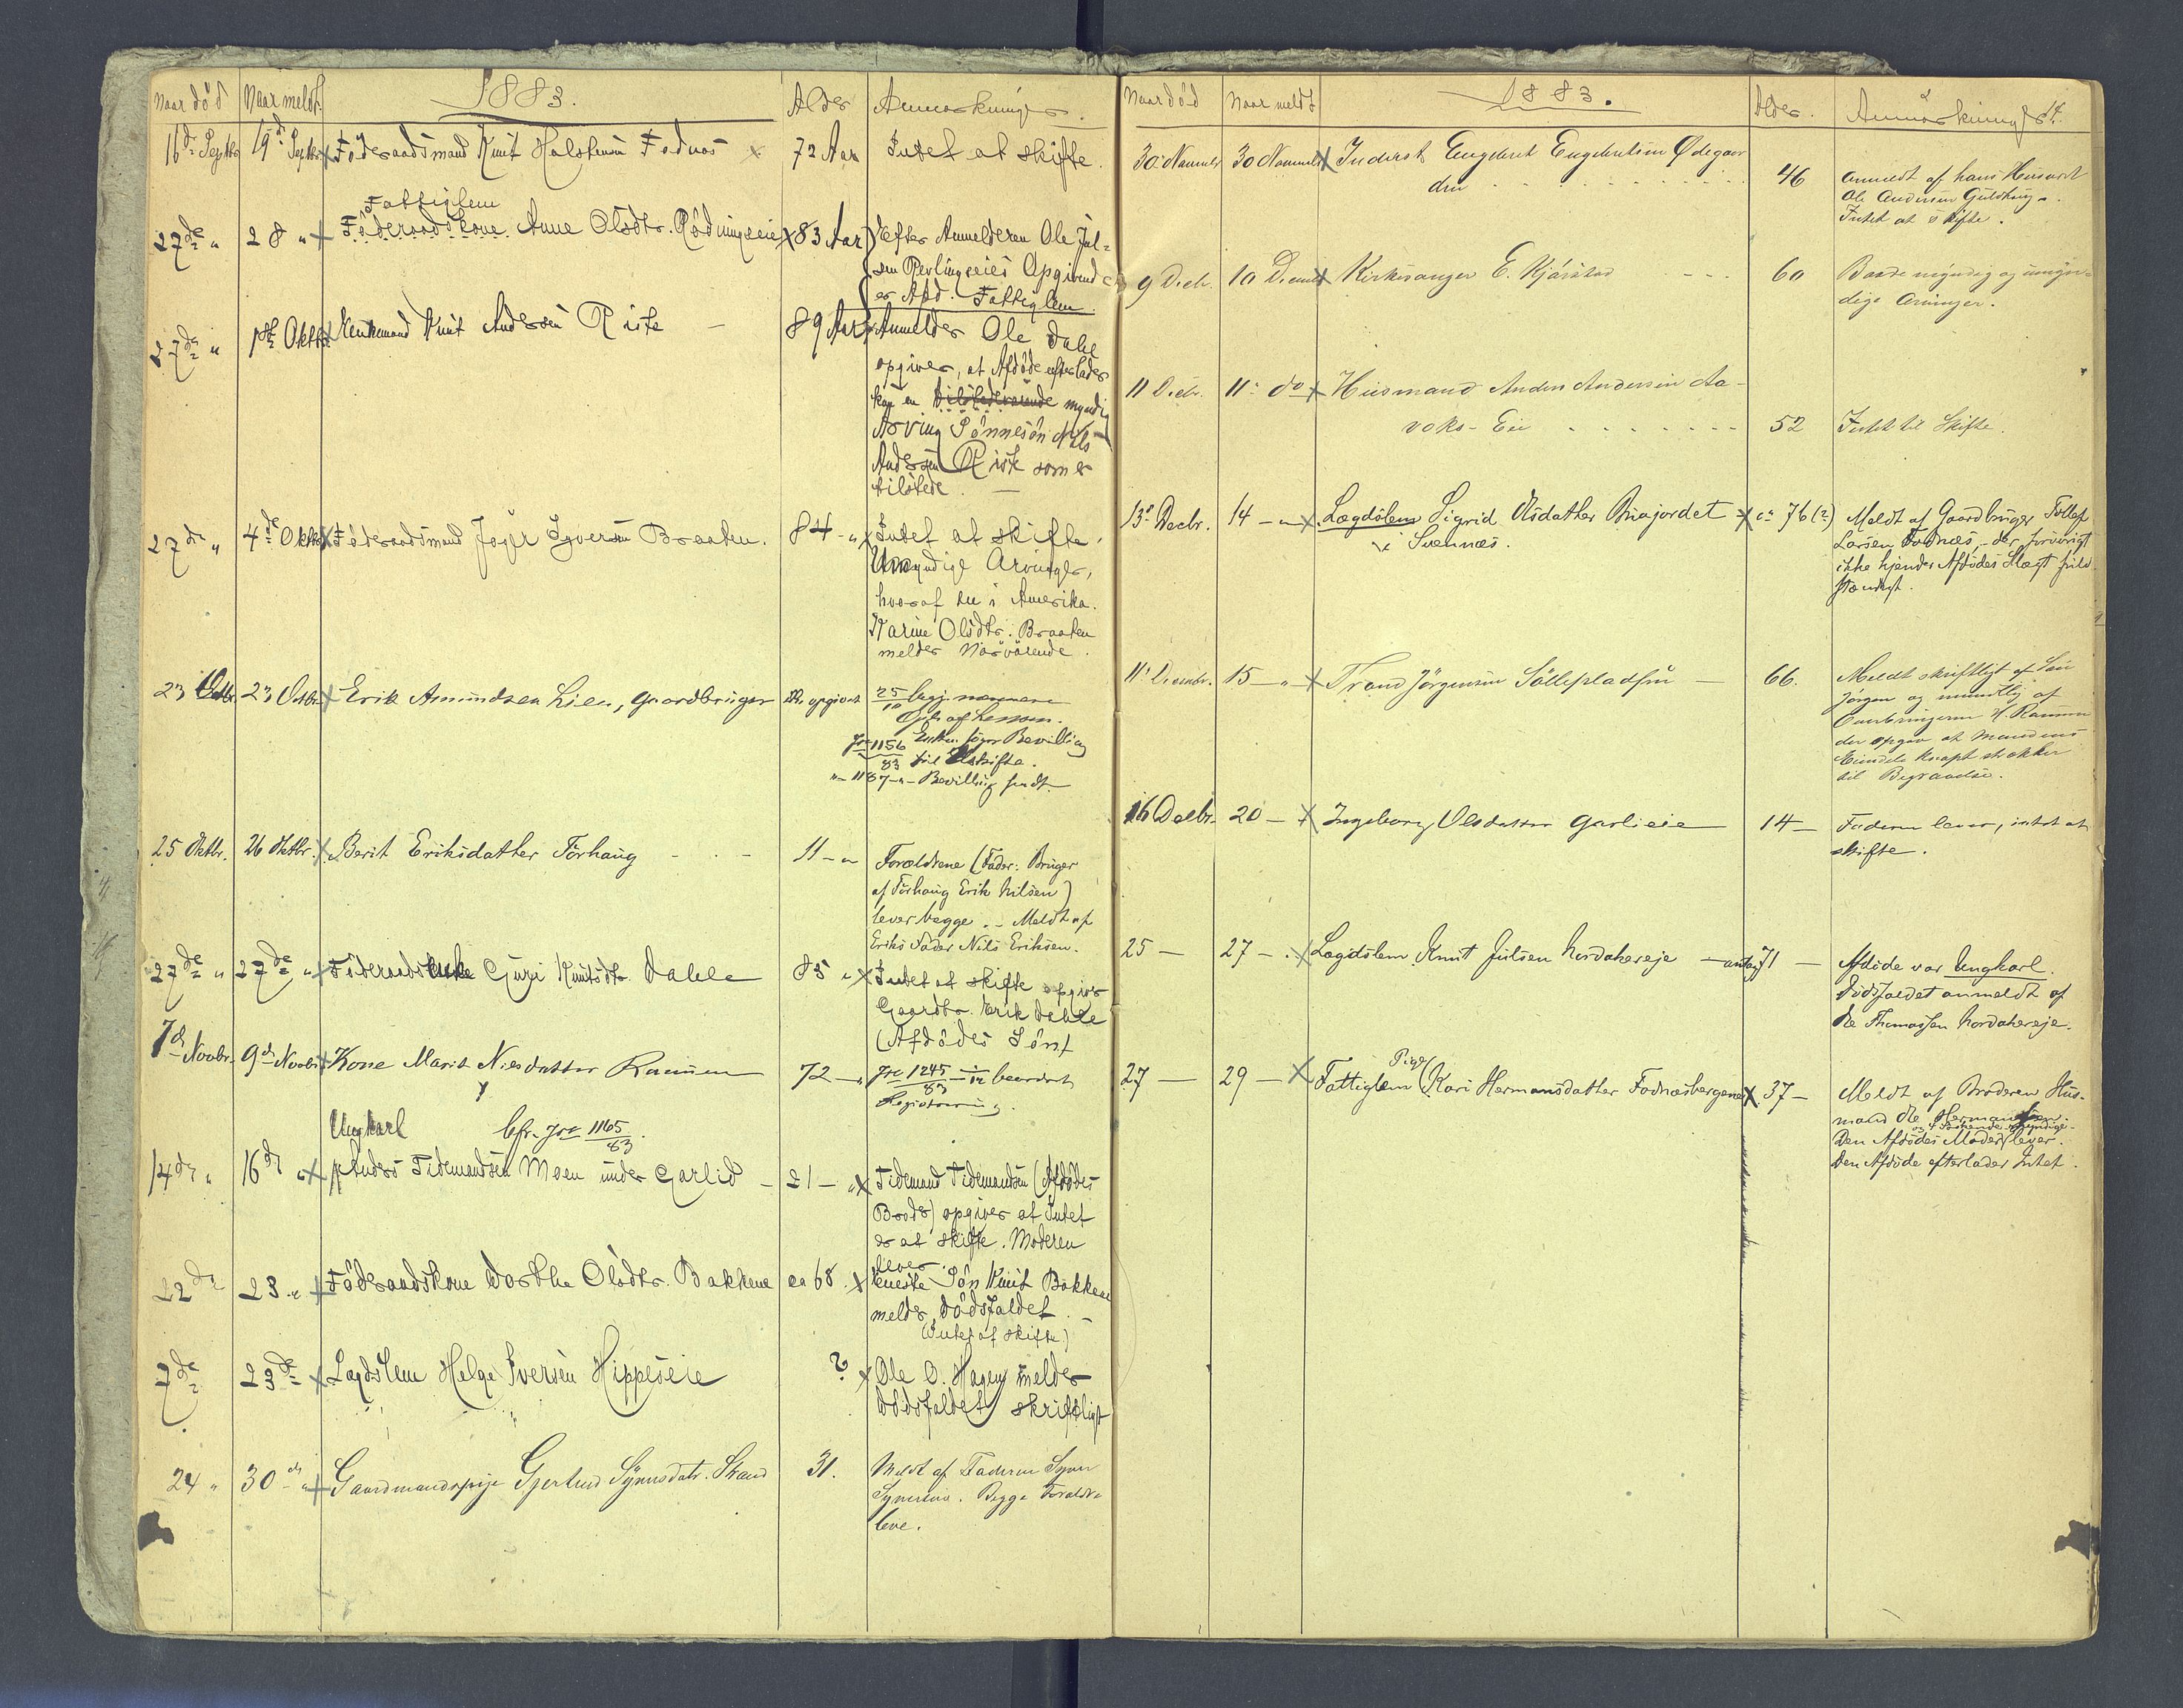 Naar död Naar meldt 1883. Alder Anmærkninger.
16de Septbr 19de Septbr Föderaadsmand Knut Halstensen Fodnæs 72 Aar Intet at skifte.
Fattiglem
27de " 28 " Föderaadskone Anne Olsdtr. Rödningseie 83 Aar Efter Anmelderen Ole Jul-
sen Revlingseies Opgivende
er Afd. Fattiglem.
27de " 1ste Oktbr Knut Andersen Riste 89 Aar Anmelder Ole Dahl
opgiver, at Afdöde efterlader
kun en Tilstedeværende myndig
Arving Sönnesön Nils
Andersen Riste som er
tilstede. —
27de " 4de Oktbr Föderaadsmand Joger Iversen Braaten. 84 - " Intet at skifte.
Umyndige Arvinger,
hvoraf en i Amerika.
Karine Olsdtr. Braaten
melder Nærværende.
23 Octbr. 23 Octbr. Erik Amundsen Lien, Gaardbruger Ikke opgivet 25/10
Enken söger Bevilling
Jre 1156/83 til Uskifte.
"- 1187 -"- Bevilling sendt.
25 Oktbr. 26 Oktbr. Berit Eriksdatter Förhaug - - - 11 - " Forældrene (Fader: Bruger
af Förhaug Erik Nilsen)
lever begge. - Meldt af
Eriks Fader Nils Eriksen.
27de " 27de " Föderaadsenke Guri Knutsdtr. Dahle 85 " Intet at skifte opgiver
Gaardbr. Erik Dahle
(Afdödes Sön)
7de Novbr. 9de Novbr Kone Marit Nilsdatter Ramsrun 72 - " Jre 1245/83 beordret
Registrering.
Ungkarl cfr. Jre 1165/83.
14de " 16de " Anders Tidemandsen Moen under Garlid - 21 - " Tidemand Tidemandsen (Afdödes
Broder) opgiver at Intet
er at skifte. Moderen
lever.
22de 23 " Föderaadskone Dorthe Olsdtr. Bakkene ca 68. eneste Sön Knut Bakkene
melder Dödsfaldet. -
(Intet at skifte)
7de 23de Lægdslem Helge Iversen Hippeseie ? Ole O. Hagen melder
Dödsfaldet skriftligt
24 " 30de " Gaardmandspige Gjertrud Synnesdatr. Strand 31. Meldt af Faderen Syver
Syversen. Begge Forældre
leve.
Naar död Naar meldt 1883. Alder. Anmærkninger 14.
30 Novembr 30 Novembr Inderst Engebret Engebretsen Ødegaar
den - - - 46 Anmeldt af hans Husvert
Ole Andersen Guldhaug.
Intet at skifte.
9 Decbr. 10 Decembr Kirkesanger E. Kjærstad - - - 60 Baade myndig og umyn-
dige Arvinger.
11 Decbr. 11 do Husmand Anders Andersen Aa-
voks-Eie - - - 52 Intet til Skifte.
13de Decbr. 14 - " Lægdslem Sigrid Olsdatter Bøajordet ca 76 (?) Meldt af Gaardbruger Tollef
i Svennæs. Larsen Fodnæs, - der forövrigt
ikke kjender Afdödes Slægt fuld
stændigt.
11 Decembr. 15 - " Trond Jörgensen Söllepladsen — 66. Meldt skriftligt af Sön
Jörgen og mundtlig af
Overbringeren H. Ramsrun
der opgav at Mandens
Eiendele knapt strækker
til Begravelse.
16 Decbr. 20 — Ingeborg Olsdatter Garlieie 14 — Faderen lever, intet at
skifte.
25 — 27 — Lægdslem Knut Julsen Nordahereje — antag 71 — Afdöde var Ungkarl.
Dödsfaldet anmeldt af
Ole Thomassen Nordahereje.
Pige
27 — 29 — Fattiglem Kari Hermansdatter Fodnæsbergene 37 — Meldt af Broderen Hus-
mand Ole Hermansen.
og Söskende myndige.
Den Afdödes Moder lever.
Den Afdöde efterlader Intet.